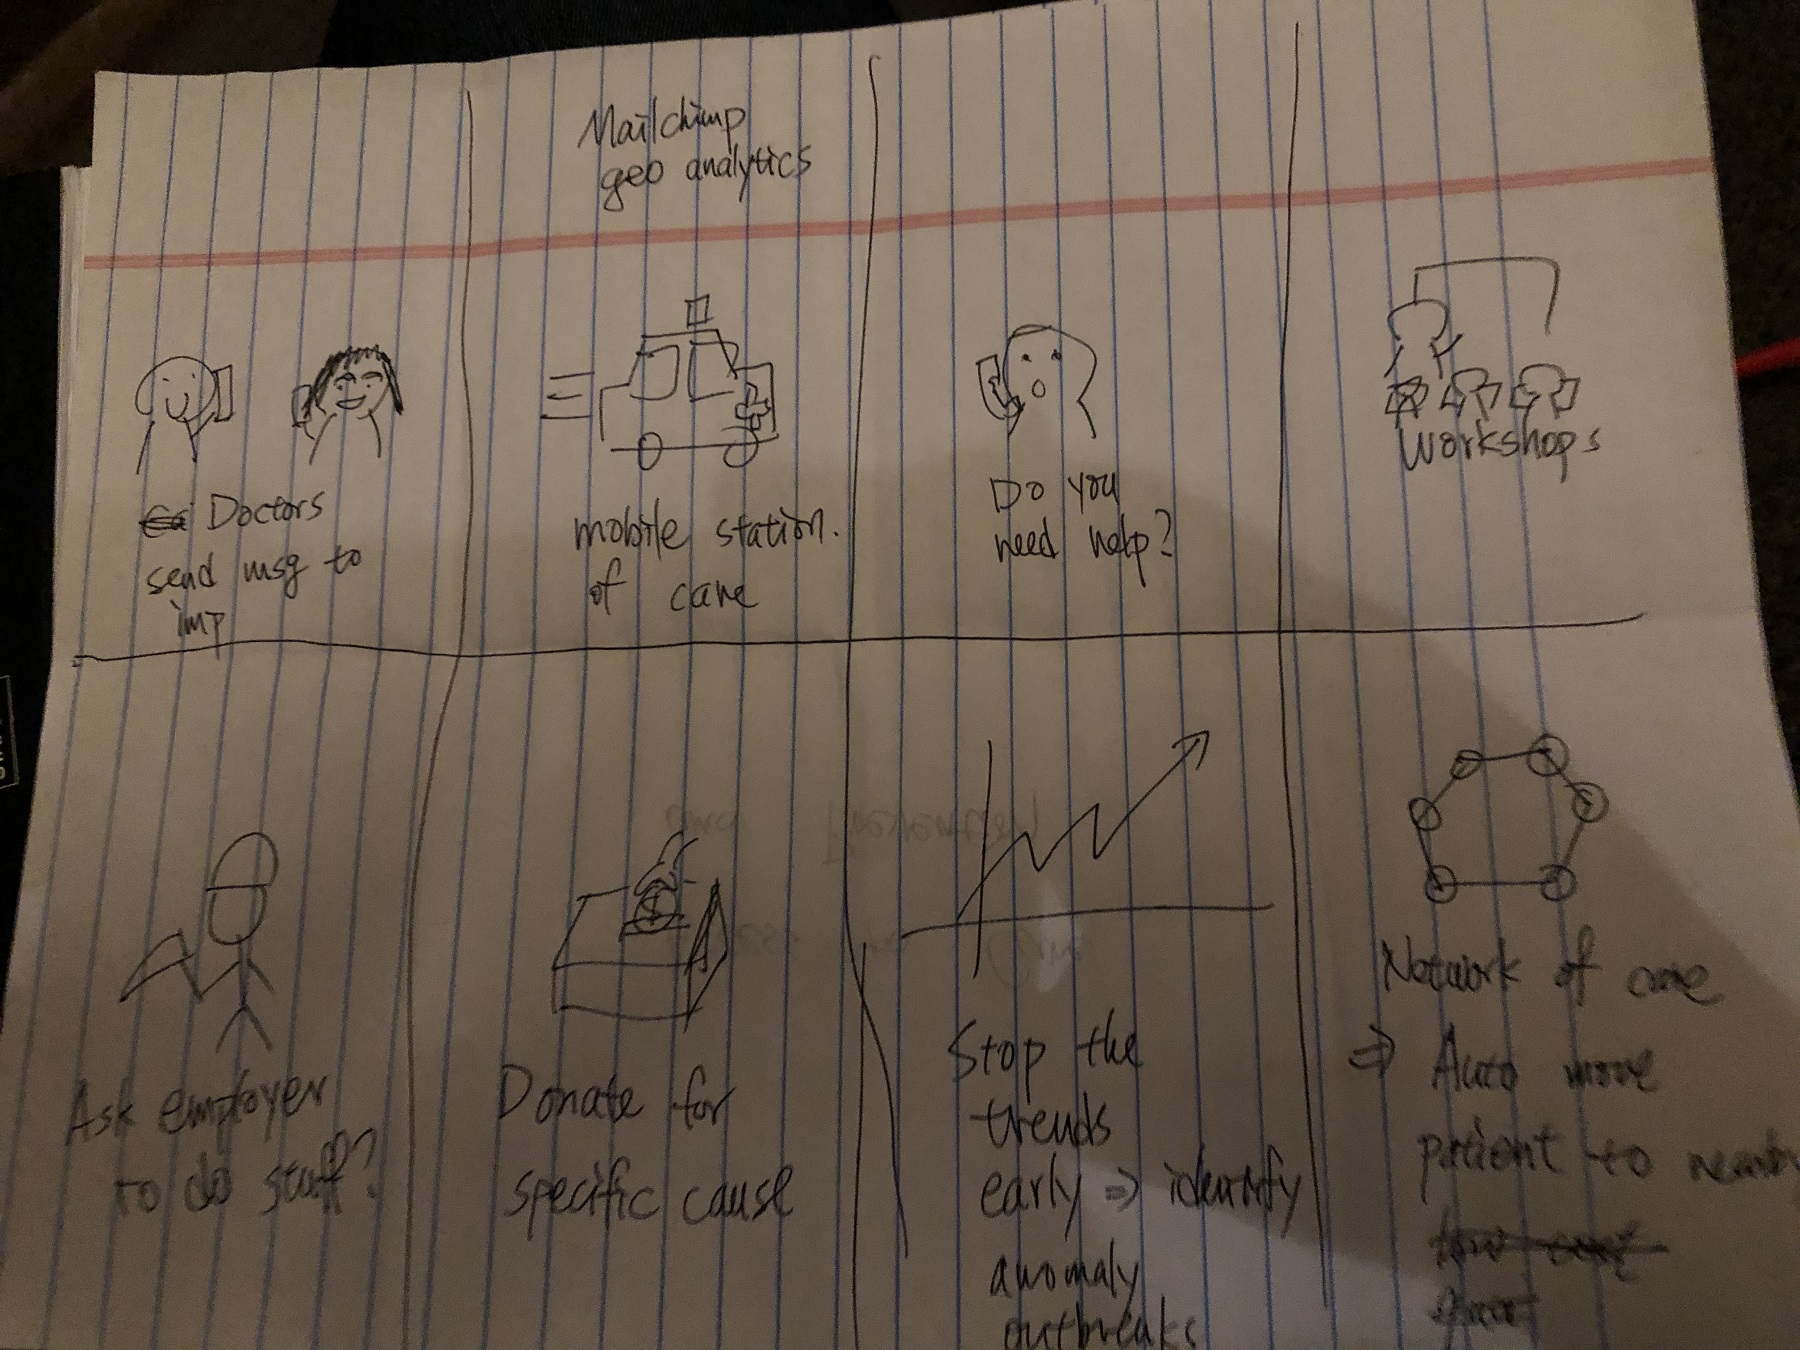 Mailchimp
geo analytics
Doctors
send msg to
imp
mobile station.
of care
Do you
need help?
Workshops
Ask employer
to do stuff?
Donate for
specific cause
Stop the
trends
early ⇒ identify
anomaly
outbreaks
Network of care
⇒ Auto move
patient to